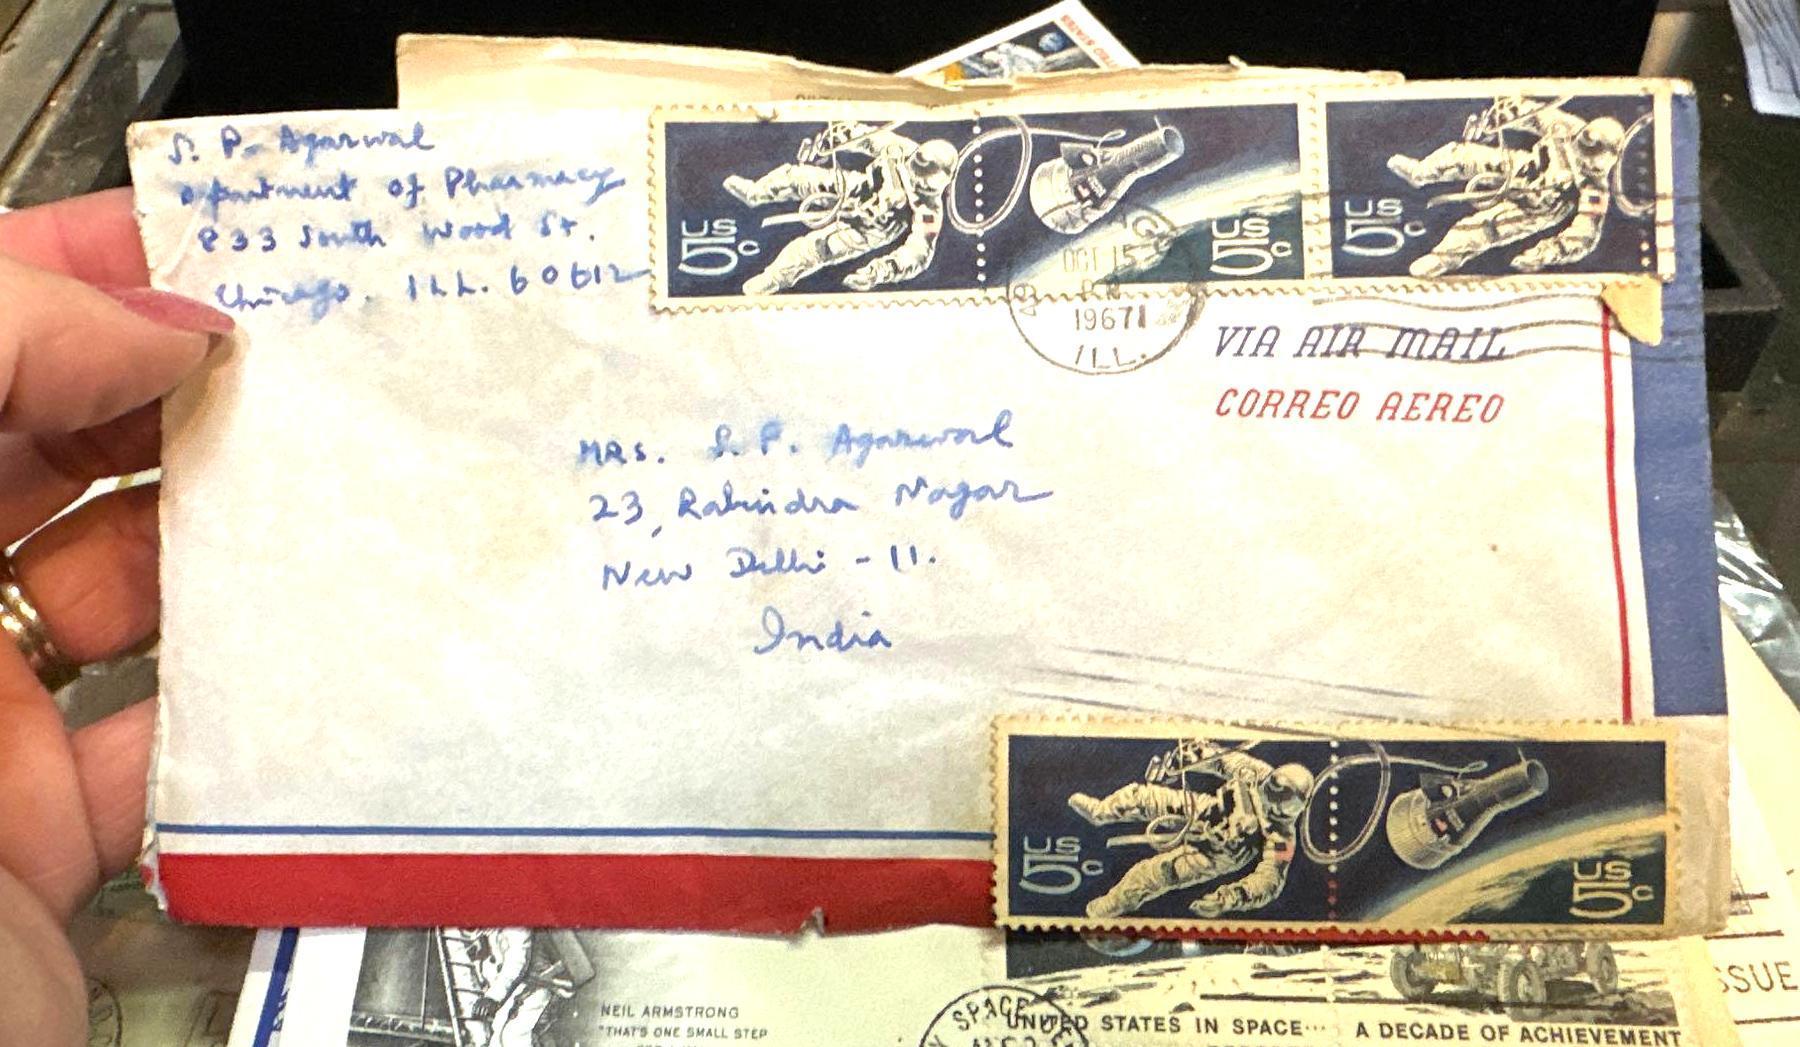 S. P. Agarwal
Department of Pharmacy
833 South Wood St.
Chicago. ILL. 60612
US 5c
US 5c
US 5c
OCT 15
1967
ILL.
VIA AIR MAIL
CORREO AEREO
MRS. S. P. Agarwal
23, Rabindra Nagar
New Delhi - 11.
India
US 5c
US 5c
NEIL ARMSTRONG
"THAT'S ONE SMALL STEP
SPACE
UNITED STATES IN SPACE... A DECADE OF ACHIEVEMENT